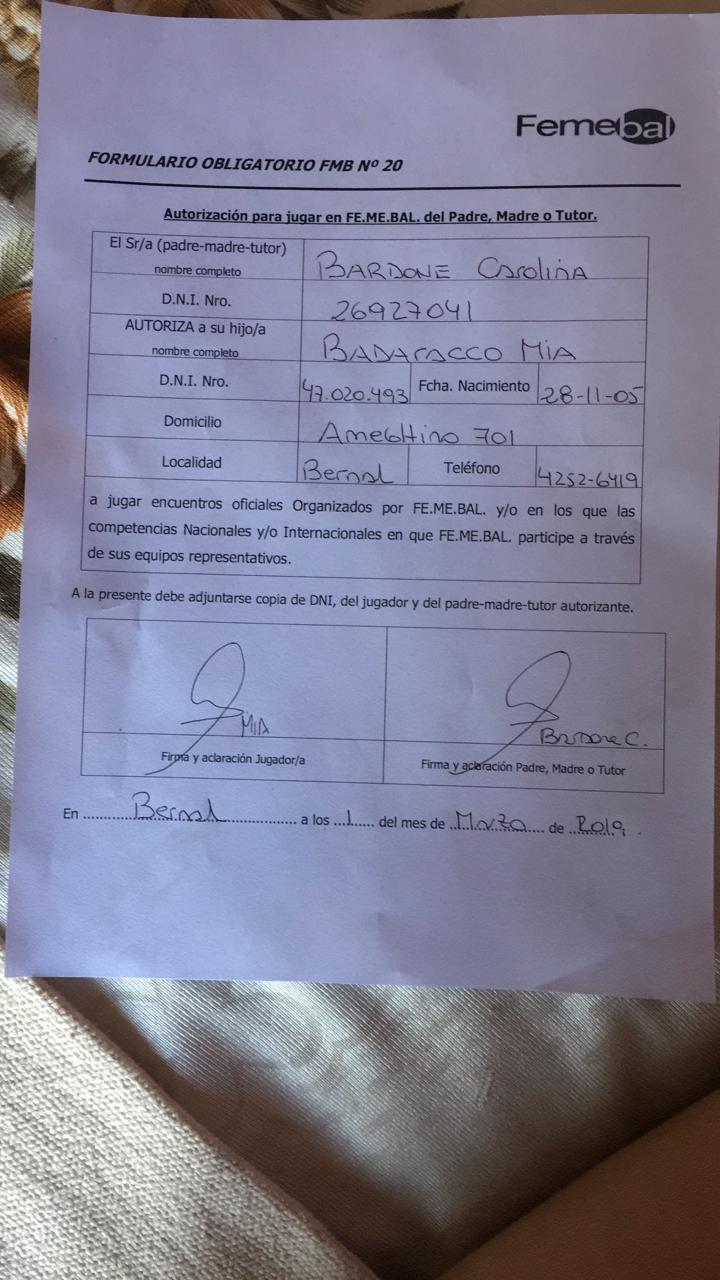 Femebal
FORMULARIO OBLIGATORIO FMB Nº 20
Autorización para jugar en FE.ME.BAL. del Padre, Madre o Tutor.
El Sr/a (padre-madre-tutor)
nombre completo
BARDONE Carolina
D.N.I. Nro.
26927041
AUTORIZA a su hijo/a
nombre completo
BADARACCO MIA
D.N.I. Nro.
47.020.493
Fcha. Nacimiento
28-11-05
Domicilio
AmeGHino 701
Localidad
Bernal
Teléfono
4252-6419
a jugar encuentros oficiales Organizados por FE.ME.BAL. y/o en los que las
competencias Nacionales y/o Internacionales en que FE.ME.BAL. participe a través
de sus equipos representativos.
A la presente debe adjuntarse copia de DNI, del jugador y del padre-madre-tutor autorizante.
MIA
BARDONE C.
Firma y aclaración Jugador/a
Firma y aclaración Padre, Madre o Tutor
En ........Bernal................ a los ...1..... del mes de ..Marzo.... de ..2019. .